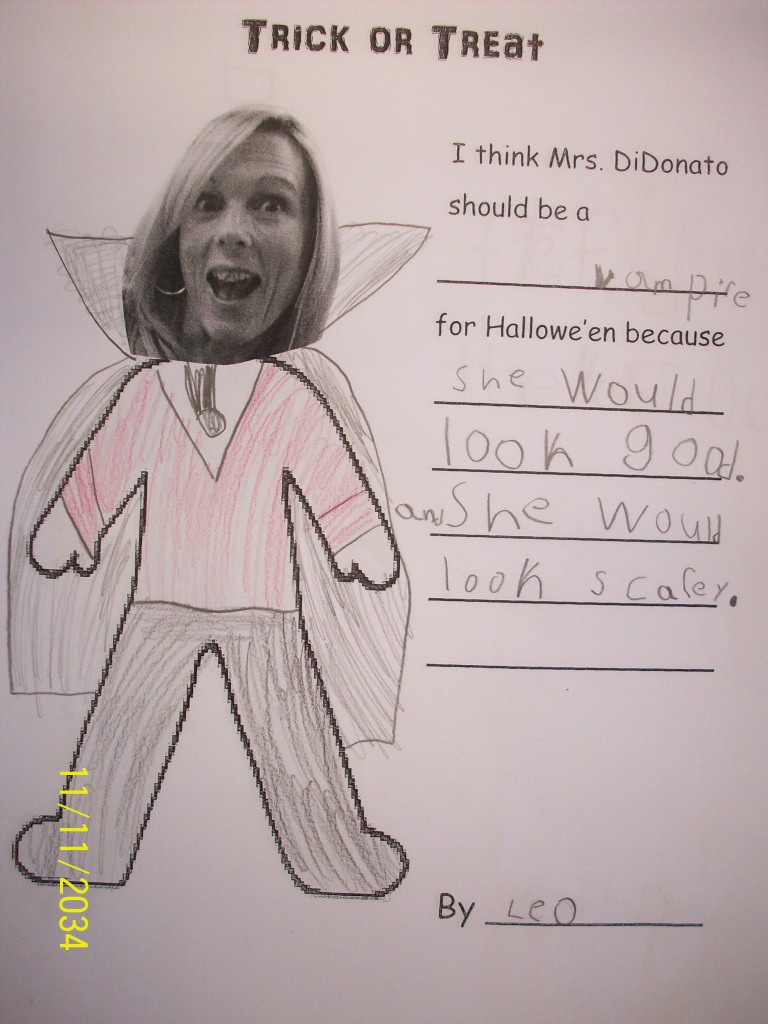 TRICK OR TREAT
I think Mrs. DiDonato
should be a
vampire
for Hallowe'en because
She Would
look good.
and She Would
look scarey.
By Leo
11/11/2034